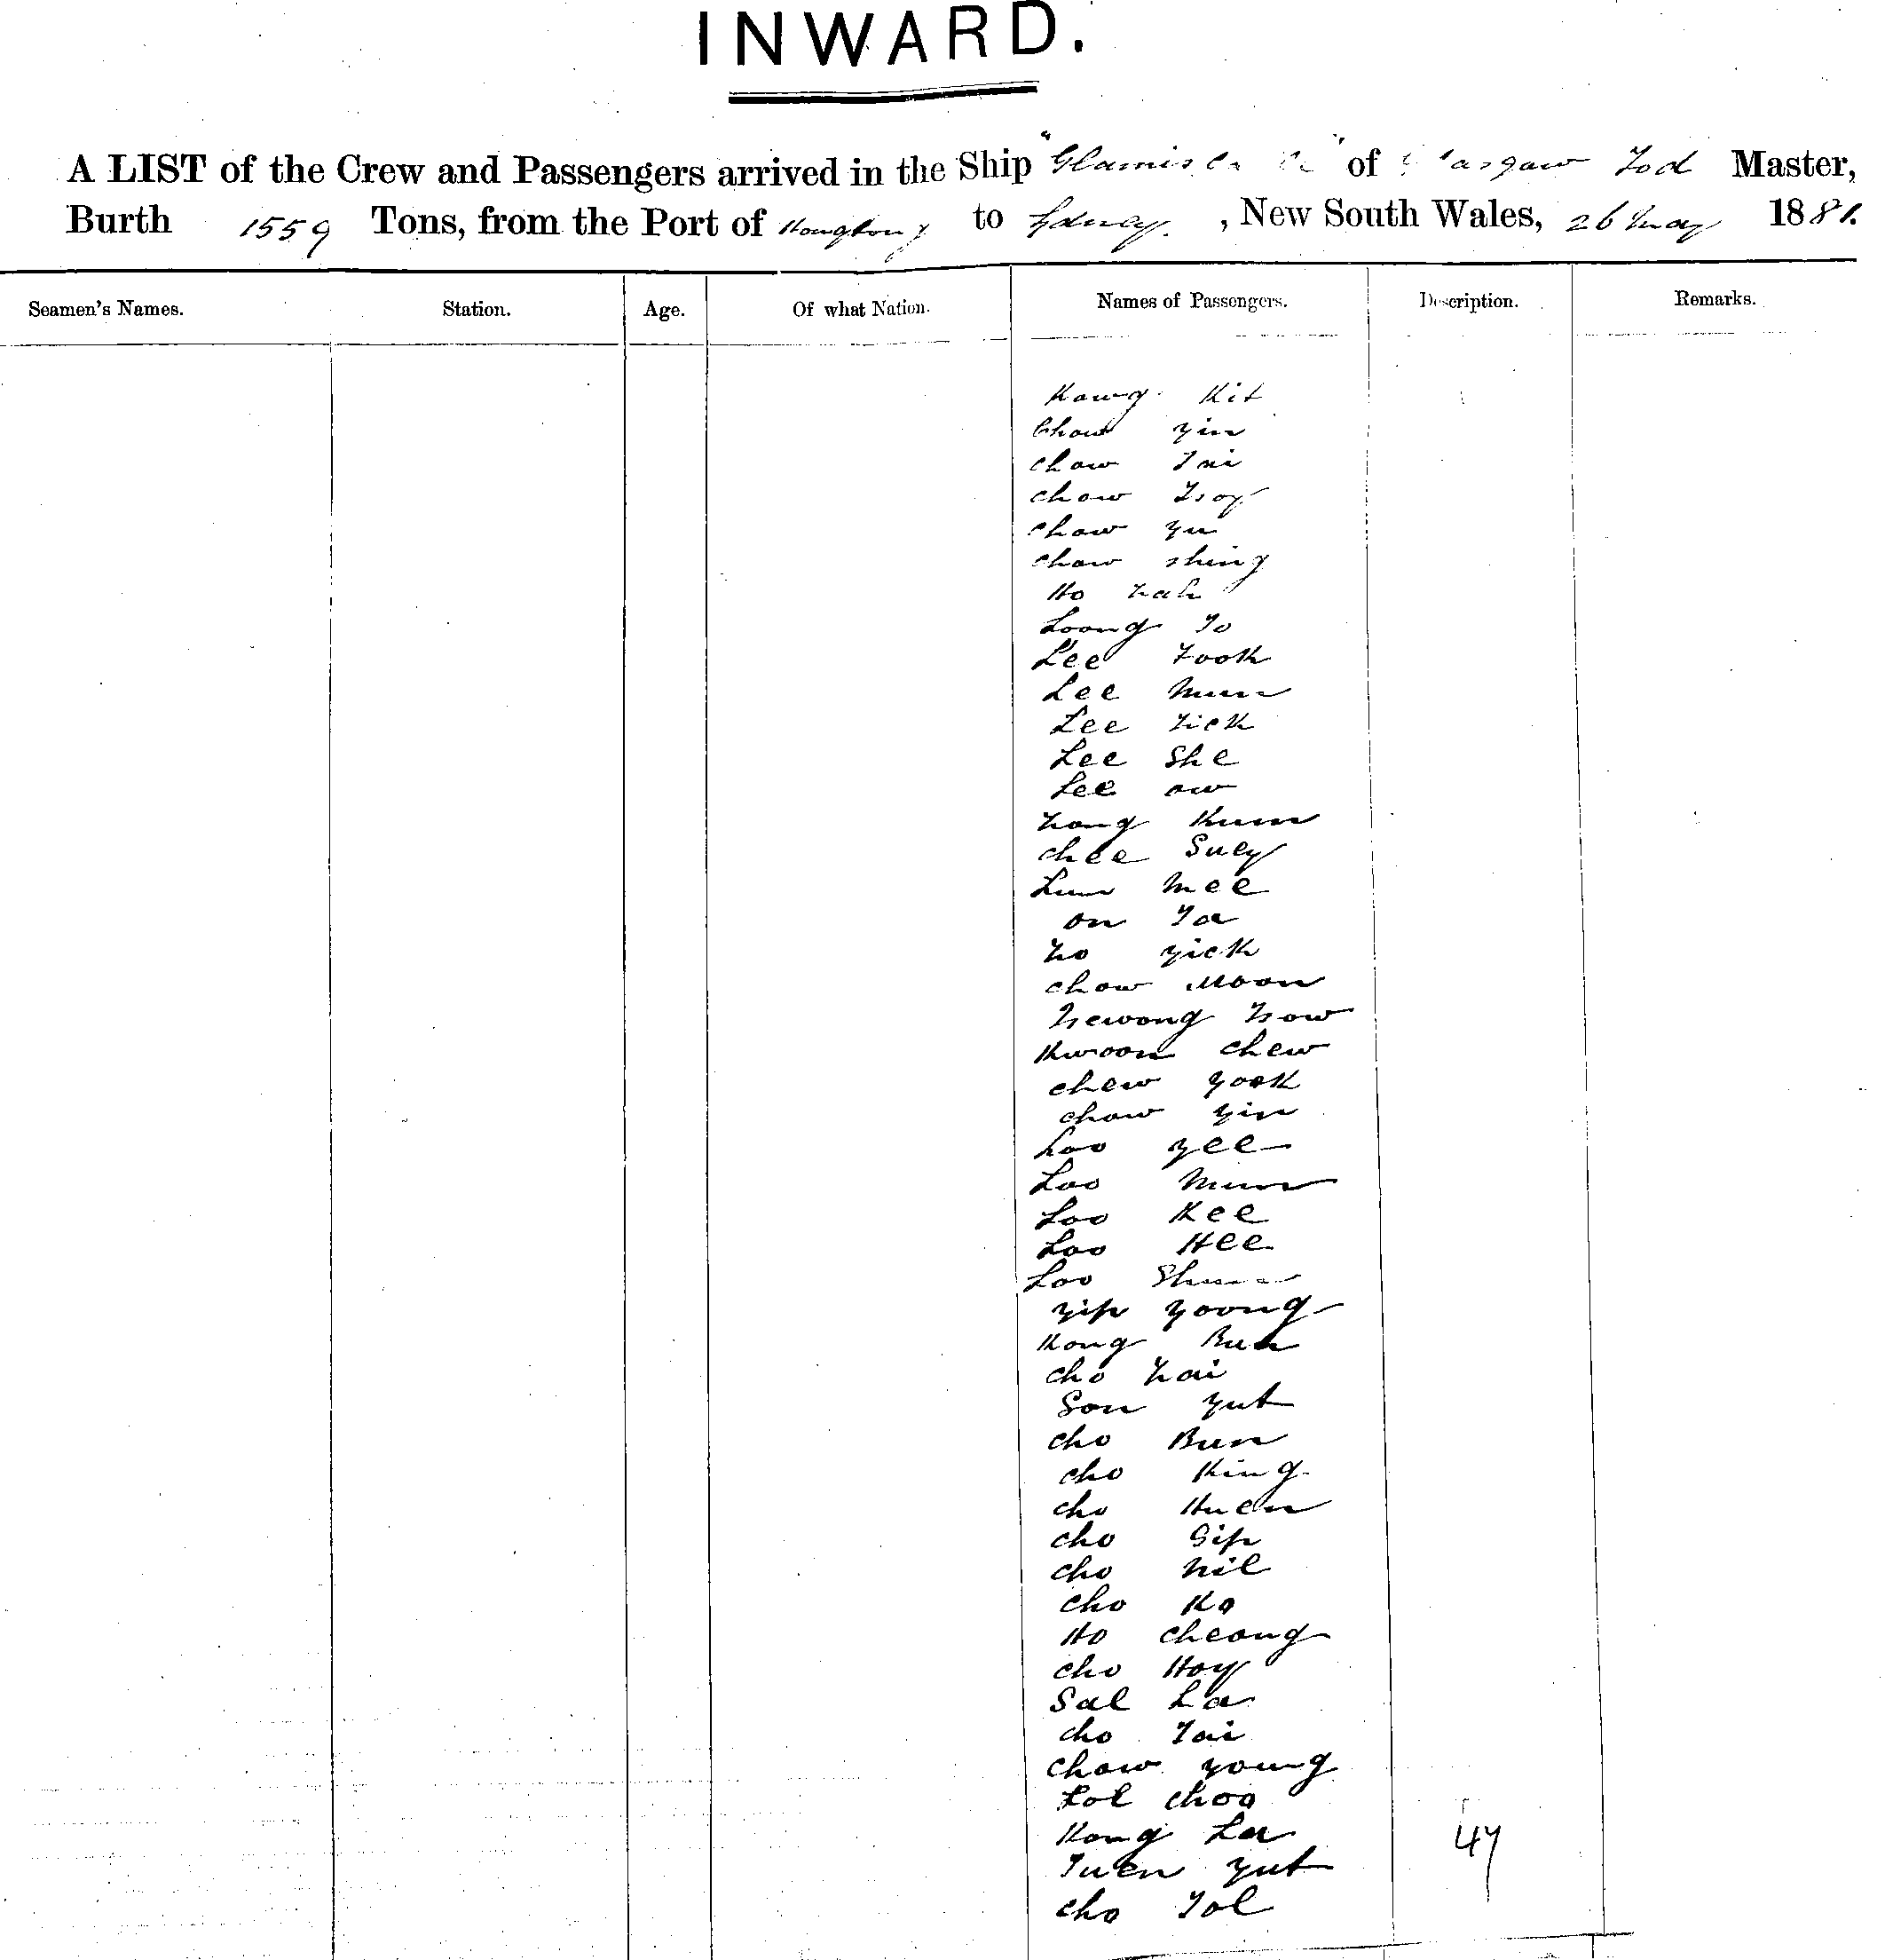 INWARD.
A LIST of the Crew and Passengers arrived in the Ship "Glamis " of Tod Master,
Burth 1559 Tons, from the Port of Hongkong to Sydney, New South Wales, 26 May 1881.
Seamen's Names. Station. Age. Of what Nation. Names of Passengers. Description. Remarks.
Kit
Chow Yin
Chow Tai
Chow Tsoy
Chow Yu
Chow Shing
Ho
Loong To
Lee Fook
Lee Mun
Lee
Lee She
Lee ow
Kum
Chee Suey
Lum Mee
on Ta
Yick
Chow Moon

Kwoon Chew
Chew Yook
Chow Yin
Loo Yee
Loo Mun
Loo Kee
Loo Hee
Loo
Yip Yoong
Kong
Cho
Son Yut
Cho Bun
Cho King
Cho Huen
Cho Sip
Cho
Cho Ko
Ho Cheong
Cho Hoy
Sal La
Cho Tai
Chow Young
Lol Choo
Kong La
47
Tuen Yut
Cho Tol